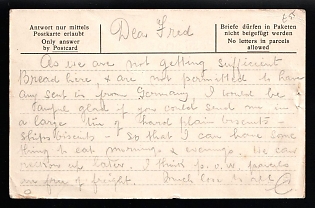 Antwort nur mittels
Postkarte erlaubt
Only answer
by Postcard
Dear Fred
Briefe dürfen in Paketen
nicht beigefügt werden
No letters in parcels
allowed
As we are not getting sufficient
Bread here & are not permitted to have
any sent in from Germany I would be
glad if you could send me in
a large tin of hard plain biscuits -
ships biscuits - so that I can have some
thing to eat mornings & evenings. We can
later. I think p.o.w. parcels
are free of freight. Much love to all